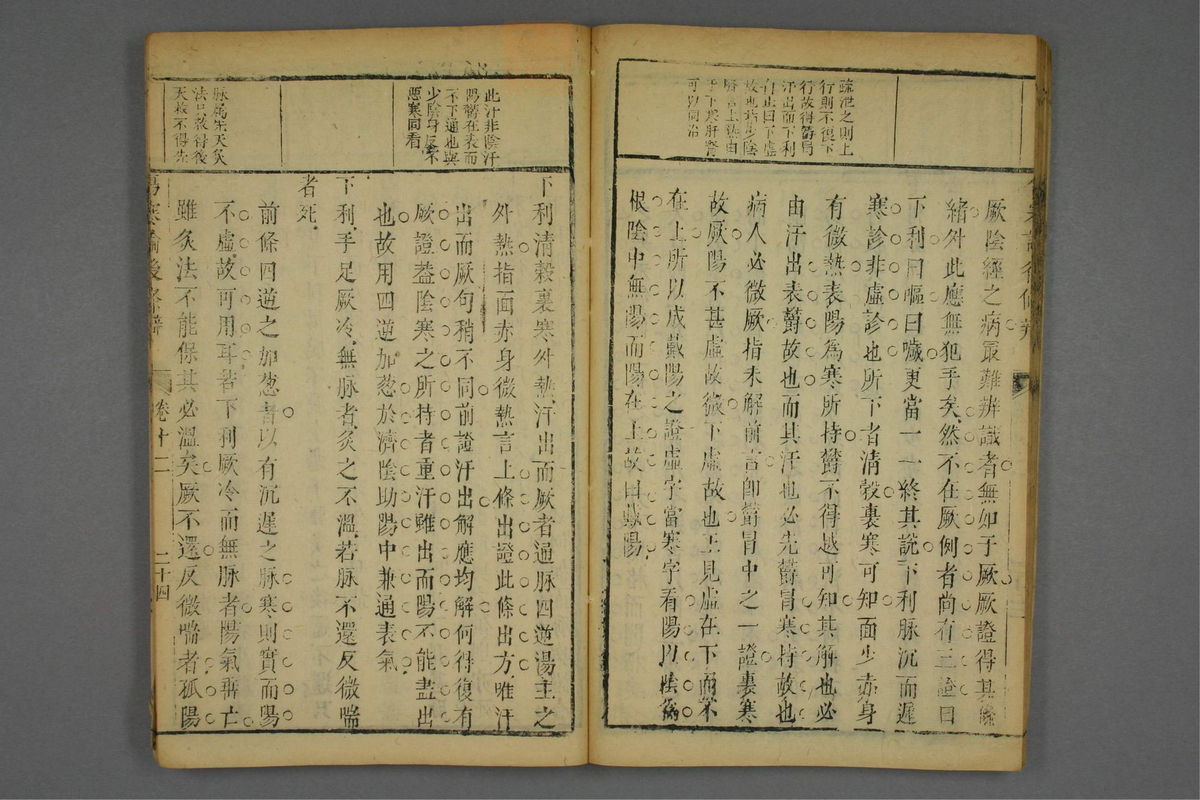 疏泄之則上
行則不復下
行故得鬱冒
汗出而下利
自止曰下虛
故也指少陰
腎言上熱由
于下寒肝腎
可以同治
厥陰經之病最難辨識者無如于厥厥證得其條
緒外此應無犯手矣然不在厥例者尚有三證曰
下利曰嘔曰噦更當一一終其說下利脉沉而遲
寒診非虛診也所下者清穀裏寒可知面少赤身
有微熱表陽爲寒所持鬱不得越可知其解也必
由汗出表鬱故也而其汗也必先鬱冒寒持故也
病人必微厥指未解前言卽鬱冒中之一證裏寒
故厥陽不甚虛故微下虛故也上見虛在下而不
在上所以成戴陽之證虛字當寒字看陽以陰爲
根陰中無陽而陽在上故曰戴陽
此汗非陰汗
陽鬱在表而
不下通也與
少陰身反不
惡寒同看
脉屬先天灸
法只救得後
天救不得先
下利清穀裏寒外熱汗出而厥者通脉四逆湯主之
外熱指面赤身微熱言上條出證此條出方唯汗
出而厥句稍不同前證汗出解應均解何得復有
厥證葢陰寒之所持者重汗雖出而陽不能盡出
也故用四逆加葱於濟陰助陽中兼通表氣
下利手足厥冷無脉者灸之不溫若脉不還反微喘
者死
前條四逆之加葱者以有沉遲之脉寒則實而陽
不虛故可用耳若下利厥冷而無脉者陽氣孤亡
雖灸法不能保其必溫矣厥不還反微喘者孤陽
傷寒論後條辨
卷十二
二十四